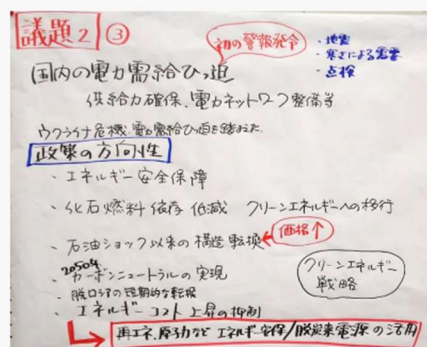 議題2 ③
初の警報発令
・地震
・寒さによる需要
・点検
国内の電力需給ひっ迫
供給力確保、電力ネットワーク整備等
ウクライナ危機、電力需給ひっ迫を踏まえた
政策の方向性
・エネルギー安全保障
・化石燃料依存低減 クリーンエネルギーへの移行
・石油ショック以来の構造転換
価格↑
2050年
・カーボンニュートラルの実現
・脱ロシアの短期的な転換
・エネルギーコスト上昇の抑制
クリーンエネルギー
戦略
再エネ、原子力など エネルギー安保/脱炭素電源の活用